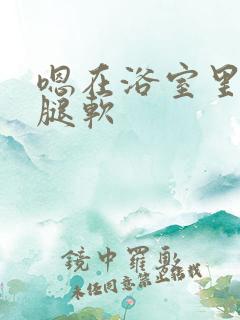 嗯在浴室里
腿软
鏡中羅歌
未经同意禁止转载